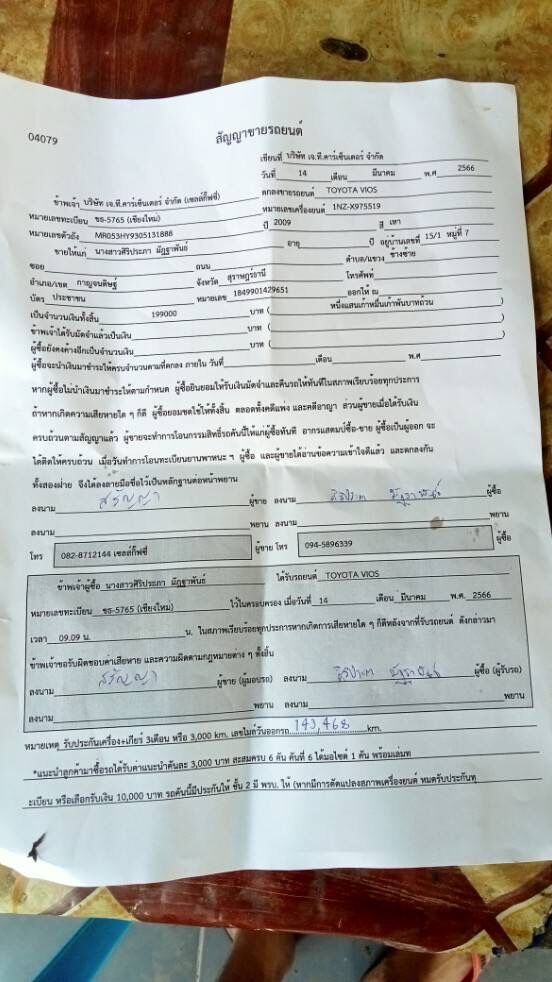 04079
สัญญาขายรถยนต์
เขียนที่ บริษัท เจ.ที.คาร์เซ็นเตอร์ จำกัด
วันที่ 14 เดือน มีนาคม พ.ศ. 2566
ข้าพเจ้า บริษัท เจ.ที.คาร์เซ็นเตอร์ จำกัด (เซลล์กิ๊ฟซี่) ตกลงขายรถยนต์ TOYOTA VIOS
หมายเลขทะเบียน ขธ-5765 (เชียงใหม่) หมายเลขเครื่องยนต์ 1NZ-X975519
หมายเลขตัวถัง MR053HY9305131888 ปี 2009 สี เทา
ขายให้แก่ นางสาวศิริประภา มัฎฐาพันธ์ อายุ ปี อยู่บ้านเลขที่ 15/1 หมู่ที่ 7
ซอย ถนน ตำบล/แขวง ช้างซ้าย
อำเภอ/เขต กาญจนดิษฐ์ จังหวัด สุราษฎร์ธานี โทรศัพท์
บัตร ประชาชน หมายเลข 1849901429651 ออกให้ ณ
เป็นจำนวนเงินทั้งสิ้น 199000 บาท ( หนึ่งแสนเก้าหมื่นเก้าพันบาทถ้วน )
ข้าพเจ้าได้รับมัดจำแล้วเป็นเงิน บาท ( )
ผู้ซื้อยังคงค้างอีกเป็นจำนวนเงิน บาท ( )
ผู้ซื้อจะนำเงินมาชำระให้ครบจำนวนตามที่ตกลง ภายใน วันที่ เดือน พ.ศ.
หากผู้ซื้อไม่นำเงินมาชำระให้ตามกำหนด ผู้ซื้อยินยอมให้ริบเงินมัดจำและคืนรถให้ทันทีในสภาพเรียบร้อยทุกประการ
ถ้าหากเกิดความเสียหายใด ๆ ก็ดี ผู้ซื้อยอมชดใช้ให้ทั้งสิ้น ตลอดทั้งคดีแพ่ง และคดีอาญา ส่วนผู้ขายเมื่อได้รับเงิน
ครบถ้วนตามสัญญาแล้ว ผู้ขายจะทำการโอนกรรมสิทธิ์รถคันนี้ให้แก่ผู้ซื้อทันที อากรแสตมป์ซื้อ-ขาย ผู้ซื้อเป็นผู้ออก จะ
ได้ติดให้ครบถ้วน เมื่อวันทำการโอนทะเบียนยานพาหนะ ฯ ผู้ซื้อ และผู้ขายได้อ่านข้อความเข้าใจดีแล้ว และตกลงกัน
ทั้งสองฝ่าย จึงได้ลงลายมือชื่อไว้เป็นหลักฐานต่อหน้าพยาน
ลงนาม สรัญญา ผู้ขาย ลงนาม ศิริประภา มัฎฐาพันธ์ ผู้ซื้อ
ลงนาม พยาน ลงนาม พยาน
โทร 082-8712144 เซลล์กิ๊ฟซี่ ผู้ขาย โทร 094-5896339 ผู้ซื้อ
ข้าพเจ้าผู้ซื้อ นางสาวศิริประภา มัฎฐาพันธ์ ได้รับรถยนต์ TOYOTA VIOS
หมายเลขทะเบียน ขธ-5765 (เชียงใหม่) ไว้ในครอบครอง เมื่อวันที่ 14 เดือน มีนาคม พ.ศ. 2566
เวลา 09.09 น. น. ในสภาพเรียบร้อยทุกประการหากเกิดการเสียหายใด ๆ ก็ดีหลังจากที่รับรถยนต์ ดังกล่าวมา
ข้าพเจ้าขอรับผิดชอบค่าเสียหาย และความผิดตามกฎหมายต่าง ๆ ทั้งสิ้น
ลงนาม สรัญญา ผู้ขาย (ผู้มอบรถ) ลงนาม ศิริประภา มัฎฐาพันธ์ ผู้ซื้อ (ผู้รับรถ)
ลงนาม พยาน ลงนาม พยาน
หมายเหตุ รับประกันเครื่อง+เกียร์ 3เดือน หรือ 3,000 km. เลขไมล์วันออกรถ 143,468 km.
*แนะนำลูกค้ามาซื้อรถได้รับค่าแนะนำคันละ 3,000 บาท สะสมครบ 6 คัน คันที่ 6 ได้มอไซต์ 1 คัน พร้อมเล่มท
ะเบียน หรือเลือกรับเงิน 10,000 บาท รถคันนี้มีประกันให้ ชั้น 2 มี พรบ. ให้ (หากมีการดัดแปลงสภาพเครื่องยนต์ หมดรับประกันทุ